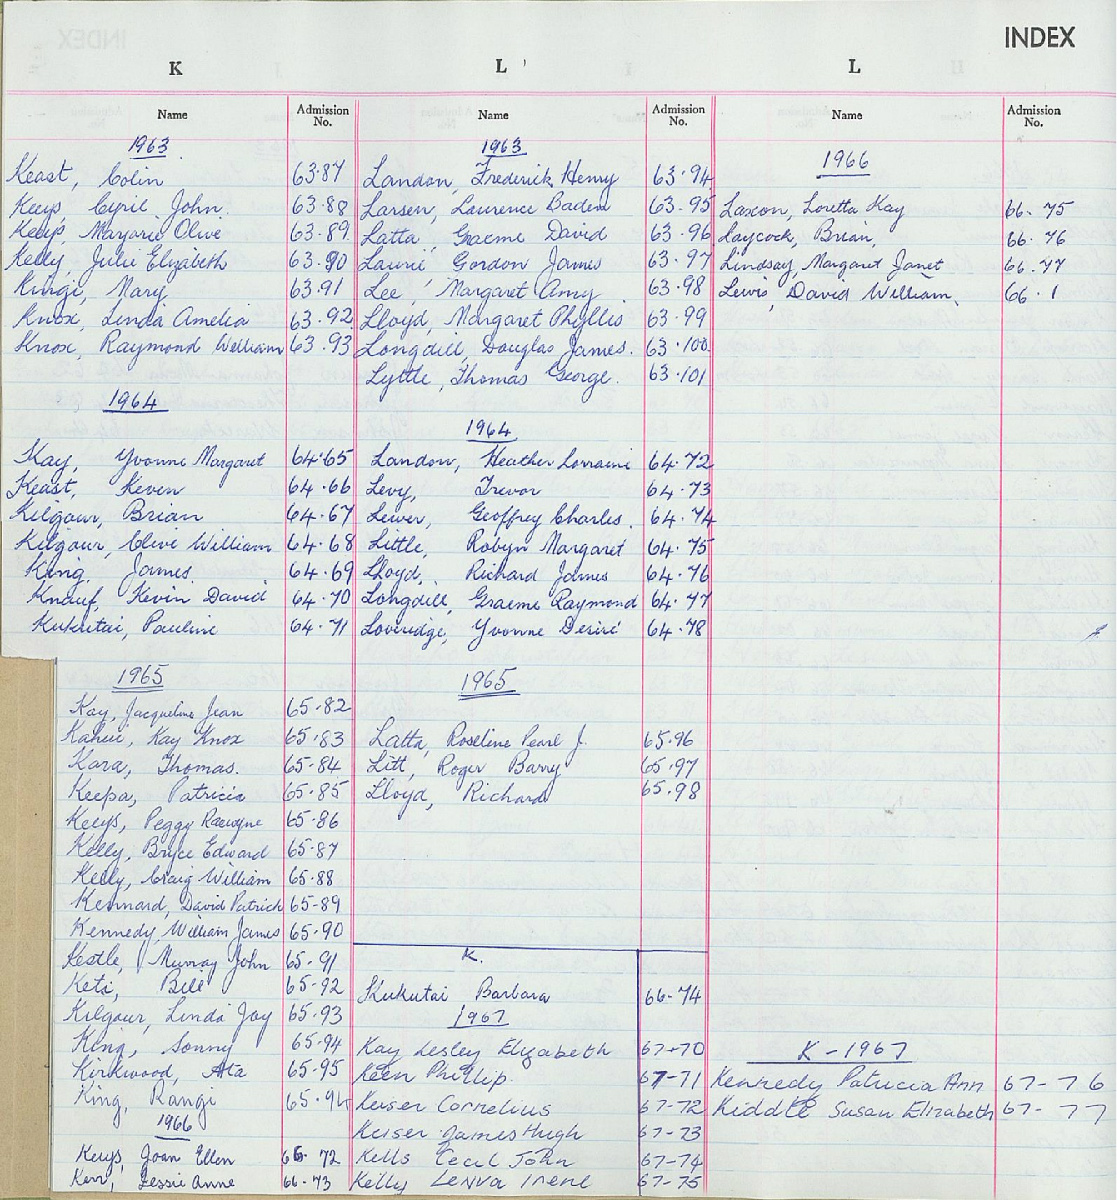 INDEX
K
Name Admission No.
1963
Keast, Colin 63.87
Keys, Cyril John. 63.88
Keys, Marjorie Olive 63.89
Kelly, Julie Elizabeth 63.90
Kingi, Mary 63.91
Knox, Linda Amelia 63.92
Knox, Raymond William 63.93
1964
Kay, Yvonne Margaret 64.65
Keast, Keven 64.66
Kilgour, Brian 64.67
Kilgour, Clive William 64.68
King, James. 64.69
Knauf, Kevin David 64.70
Kukutai, Pauline 64.71
1965
Kay, Jacqueline Jean 65.82
Kahui, Kay Knox 65.83
Kara, Thomas. 65.84
Keepa, Patricia 65.85
Keeys, Peggy 65.86
Kelly, Bryce Edward 65.87
Kelly, Craig William 65.88
Kennard, David Patrick 65-89
Kennedy, William James 65.90
Kestle, Murray John 65.91
Keti, Bill 65.92
Kilgour, Linda Joy 65.93
King, Sonny 65.94
Kirkwood, Ata 65.95
King, Rangi
1966
Keeys, Joan Ellen 66.72
Kerr, Lessie Anne 66.73
L
Name Admission No.
1963
Landon, Frederick Henry 63.94
Larsen, Laurence Baden 63.95
Latta, Graeme David 63.96
Laurie Gordon James 63.97
Lee, Margaret Amy 63.98
Lloyd, Margaret Phyllis 63.99
Longdill, Douglas James. 63.100
Lyttle, Thomas George. 63.101
1964
Landon, Heather Lorraine 64.72
Levy, Trevor 64.73
Lewer, Geoffrey Charles. 64.74
Little, Robyn Margaret 64.75
Lloyd, Richard James 64.76
Longdill, Graeme Raymond 64.77
Loveridge, Yvonne Desiré 64.78
1965
Latta, Roseline Pearl J. 65.96
Litt, Roger Barry 65.97
Lloyd, Richard 65.98
K.
Kukutai Barbara 66-74
1967
Kay Lesley Elizabeth 67-70
Keen Phillip. 67-71
Keiser Cornelius 67-72
Keiser James Hugh 67-73
Kells Cecil John 67-74
Kelly Lenva Irene 67-75
L
Name Admission No.
1966
Laxon, Loretta Kay 66.75
Laycock, Brian, 66.76
Lindsay, Margaret Janet 66.77
Lewis, David William. 66.1
K-1967
Kennedy Patricia Ann 67-76
Kiddle Susan Elizabeth 67-77